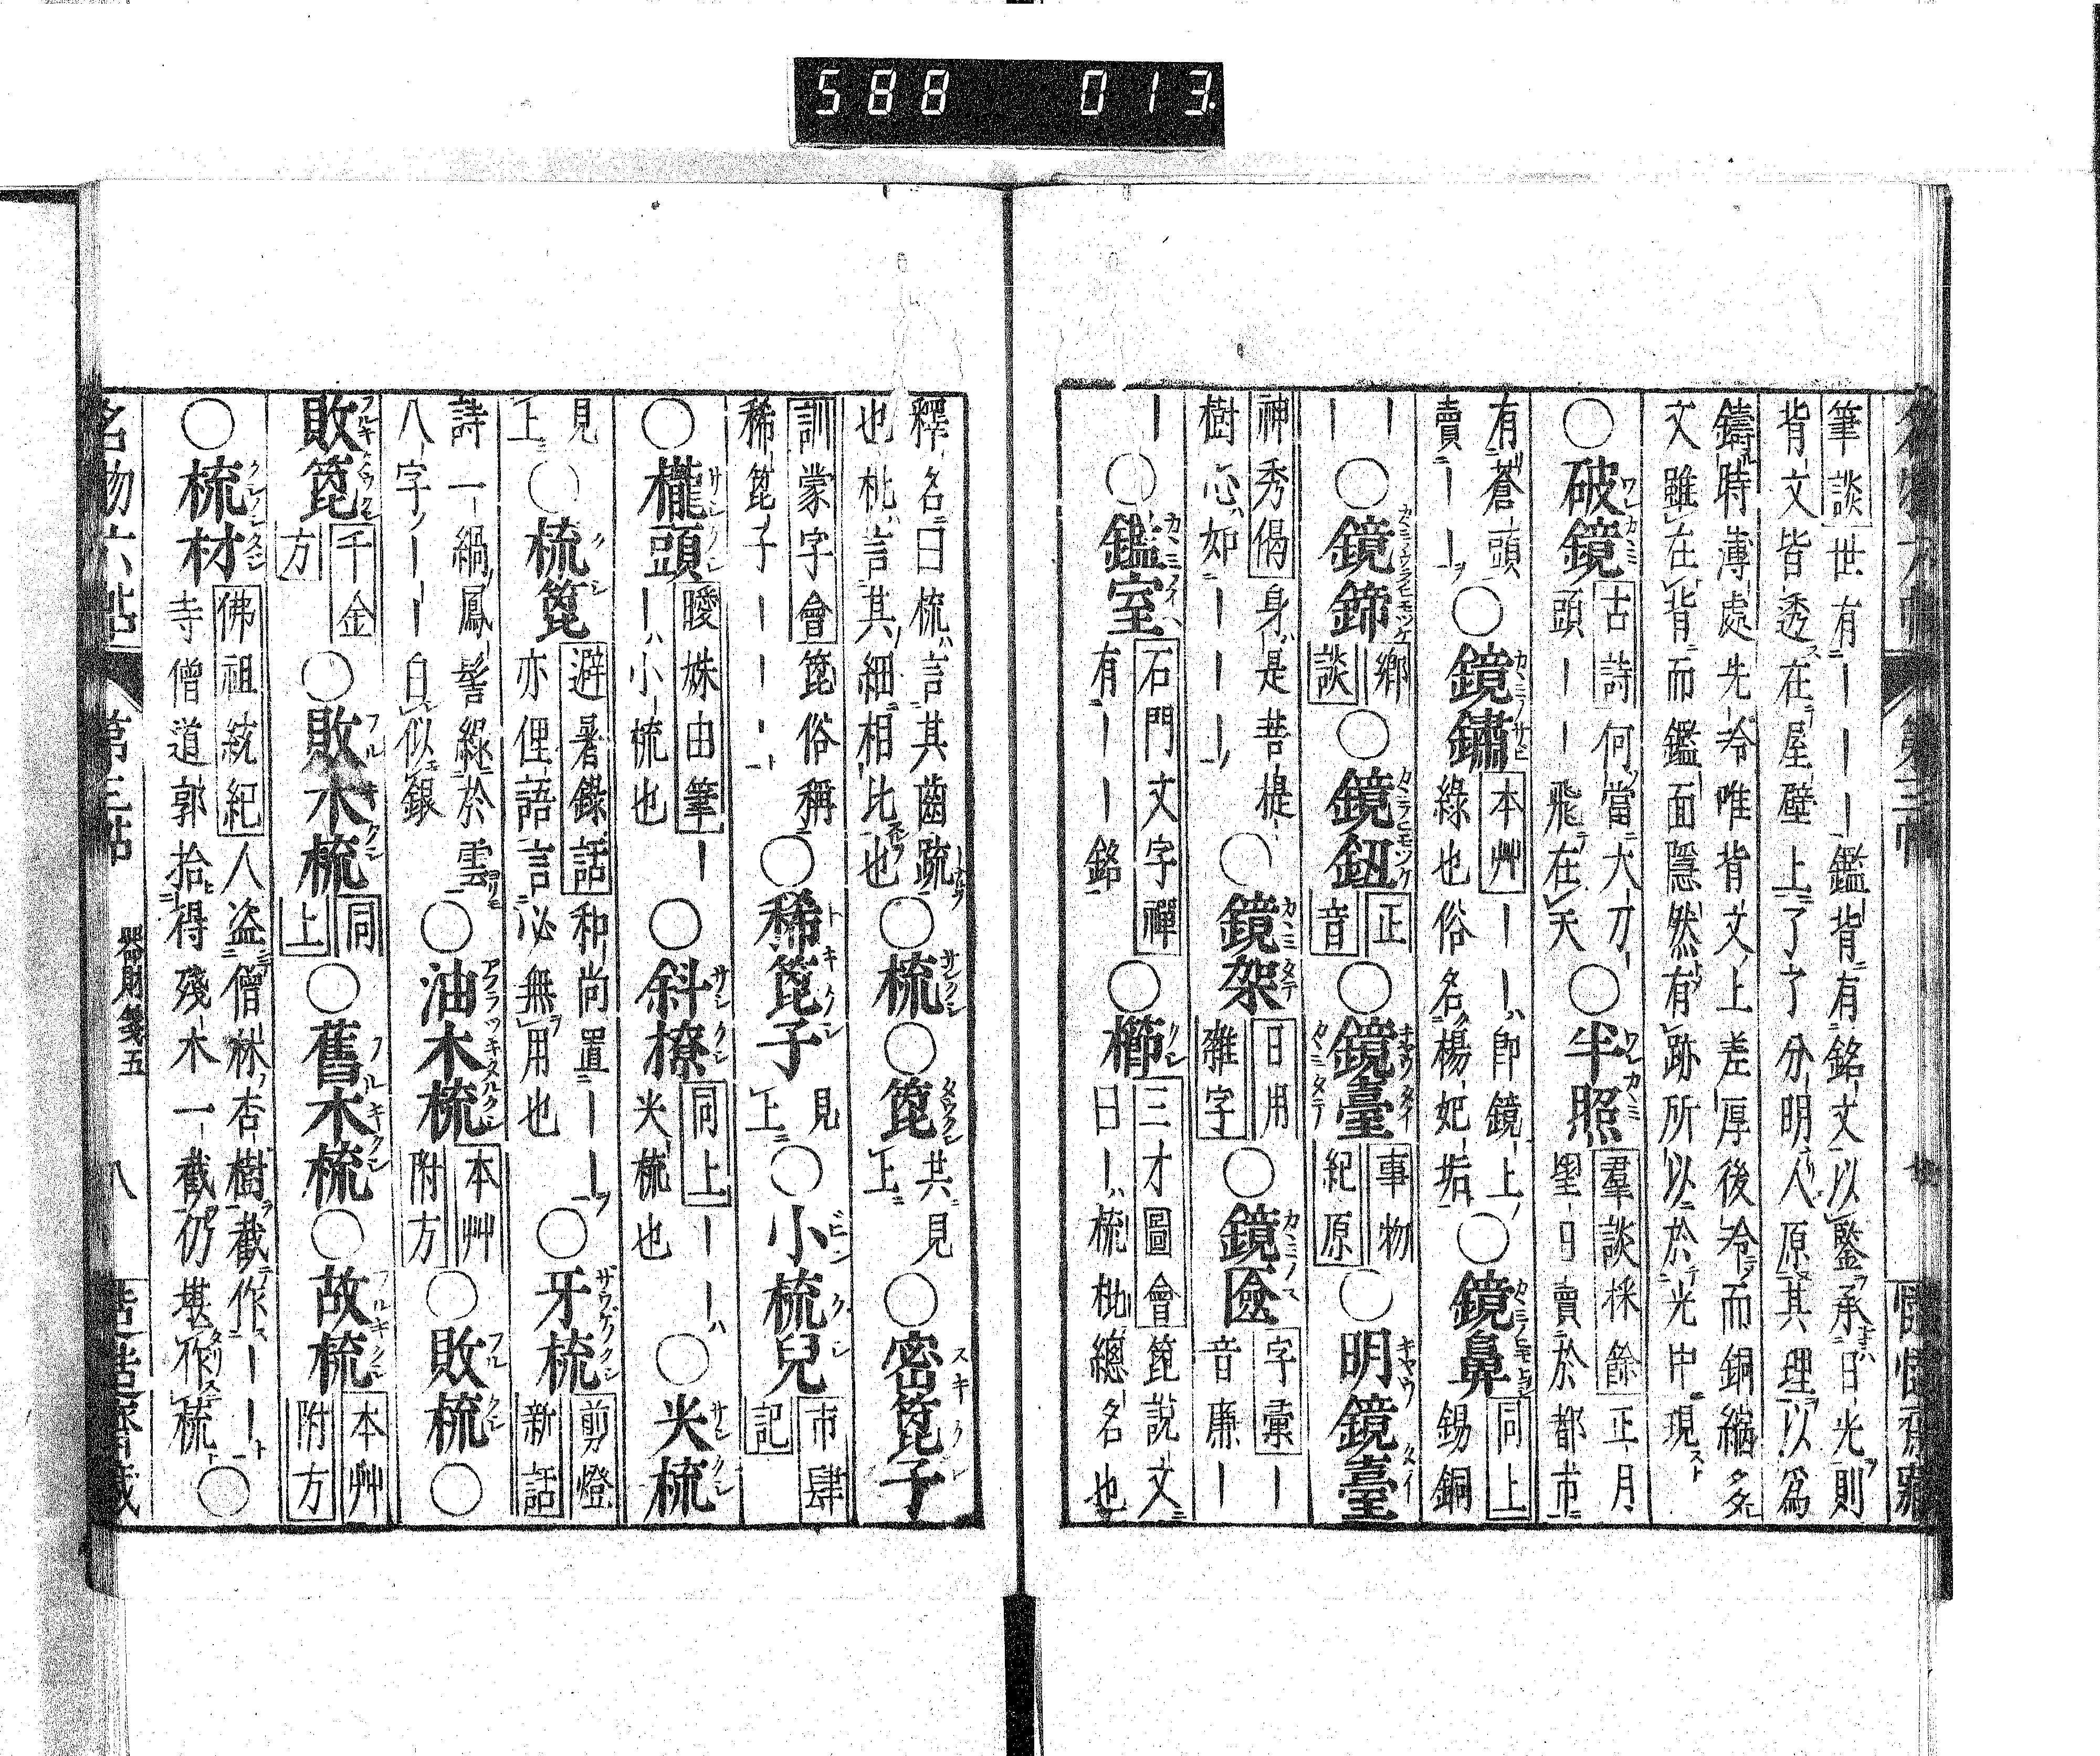 588 013
筆談世有｜｜｜鑑背有銘文以鑒承日光則
背文皆透在屋壁上了了分明人原其理以爲
鑄時薄處先冷唯背文上差厚後冷而銅縮多
文雖在背而鑑面隱然有跡所以於光中現
〇破鏡 古詩何當大刀頭｜｜｜飛在天〇半照 羣談採餘正月望日賣於都市
有蒼頭賣｜｜｜〇鏡鏽 本艸｜｜｜即鏡上綠也俗名楊妃垢〇鏡鼻 同上錫銅
｜｜〇鏡鈽 鄉談〇鏡鈕 正音〇鏡臺 事物紀原〇明鏡臺
神秀偈身是菩提樹心如｜｜｜〇鏡架 日用雜字〇鏡匳 字彙｜音廉｜
｜〇鑑室 石門文字禪有｜｜｜銘〇櫛 三才圖會篦說文曰｜梳枇總名也
釋名曰梳言其齒疏也枇言其細相比也〇梳〇篦 共見上〇密篦子
訓蒙字會篦俗稱稀篦子｜｜｜〇稀篦子 見上〇小梳兒 市肆記
〇櫳頭 曖姝由筆｜｜小梳也〇斜橑 同上｜｜光梳也〇光梳
見上〇梳篦 避暑錄話和尚置｜｜亦俚語言必無用也〇牙梳 剪燈新話
詩一緺鳳髻綠於雲八字｜｜｜白似銀〇油木梳 本艸附方〇敗梳〇
敗篦 千金方〇敗木梳 同上〇舊木梳〇故梳 本艸附方
〇梳材 佛祖統紀人盜僧林杏樹截作｜｜寺僧道郭拾得殘木一截仍堪作梳〇
名物六帖 第三帖 器財箋五 八